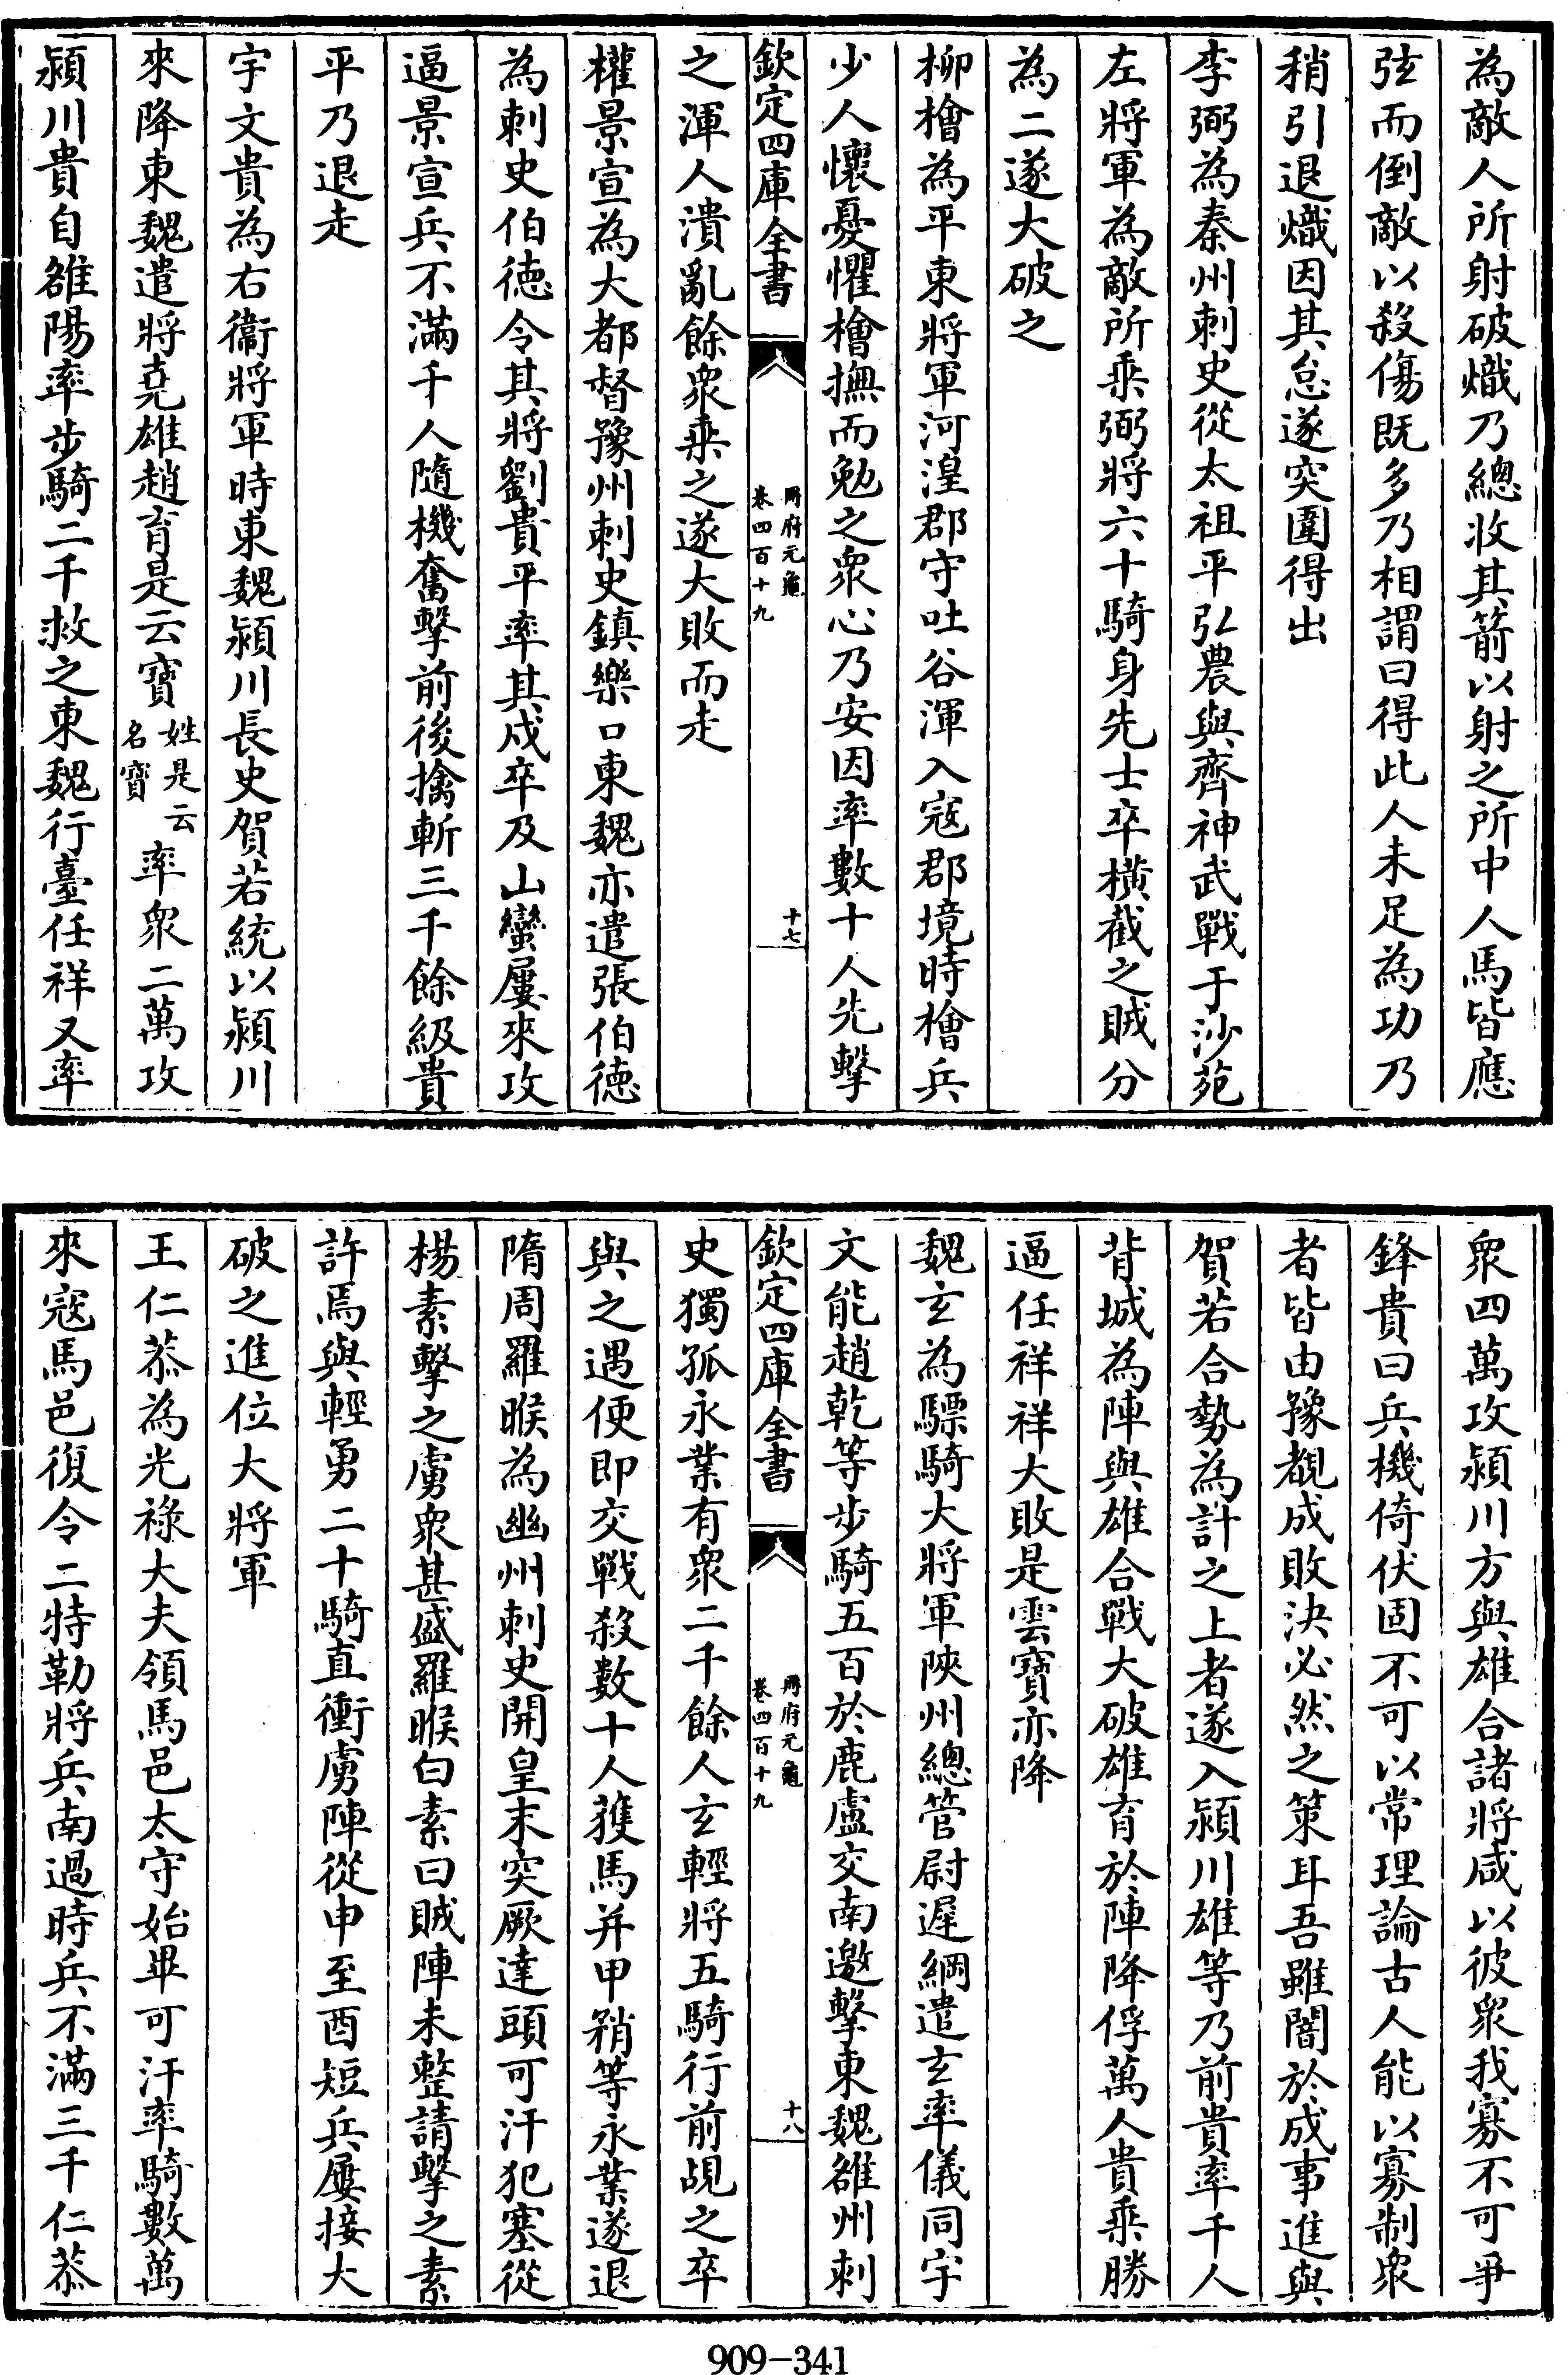 為敵人所射破熾乃總收其箭以射之所中人馬皆應
弦而倒敵以殺傷既多乃相謂曰得此人未足為功乃
稍引退熾因其怠遂突圍得出
李弼為秦州刺史從太祖平弘農與齊神武戰于沙苑
左將軍為敵所乘弼將六十騎身先士卒橫截之賊分
為二遂大破之
柳檜為平東將軍河湟郡守吐谷渾入寇郡境時檜兵
少人懷憂懼檜撫而勉之衆心乃安因率數十人先擊
欽定四庫全書
冊府元龜
卷四百十九
十七
之渾人潰亂餘衆乘之遂大敗而走
權景宣為大都督豫州刺史鎮樂口東魏亦遣張伯德
為刺史伯德令其將劉貴平率其戍卒及山蠻屢來攻
逼景宣兵不滿千人隨機奮擊前後擒斬三千餘級貴
平乃退走
宇文貴為右衛將軍時東魏潁川長史賀若統以潁川
來降東魏遣將堯雄趙育是云寶姓是云名寶率衆二萬攻
潁川貴自雒陽率步騎二千救之東魏行臺任祥又率
衆四萬攻潁川方與雄合諸將咸以彼衆我寡不可爭
鋒貴曰兵機倚伏固不可以常理論古人能以寡制衆
者皆由豫覩成敗決必然之策耳吾雖闇於成事進與
賀若合勢為計之上者遂入潁川雄等乃前貴率千人
背城為陣與雄合戰大破雄育於陣降俘萬人貴乘勝
逼任祥祥大敗是雲寶亦降
魏玄為驃騎大將軍陝州總管尉遲綱遣玄率儀同宇
文能趙乾等步騎五百於鹿盧交南邀擊東魏雒州刺
欽定四庫全書
冊府元龜
卷四百十九
十八
史獨孤永業有衆二千餘人玄輕將五騎行前覘之卒
與之遇便即交戰殺數十人獲馬并甲矟等永業遂退
隋周羅睺為幽州刺史開皇末突厥達頭可汗犯塞從
楊素擊之虜衆甚盛羅睺白素曰賊陣未整請擊之素
許焉與輕勇二十騎直衝虜陣從申至酉短兵屢接大
破之進位大將軍
王仁恭為光祿大夫領馬邑太守始畢可汗率騎數萬
來寇馬邑復令二特勒將兵南過時兵不滿三千仁恭
909-341